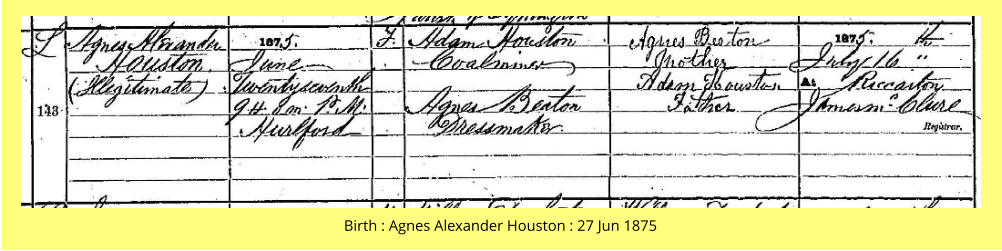 Agnes Alexander
Houston
(Illegitimate)
143
1875.
June
Twentyseventh
9 H. 8 m. P.M.
Hurlford
F.
Adam Houston
Coalminer
Agnes Beaton
Dressmaker
Agnes Beaton
Mother
Adam Houston
Father
1875.
July 16 th "
At Riccarton
James McClure
Registrar.
Birth : Agnes Alexander Houston : 27 Jun 1875